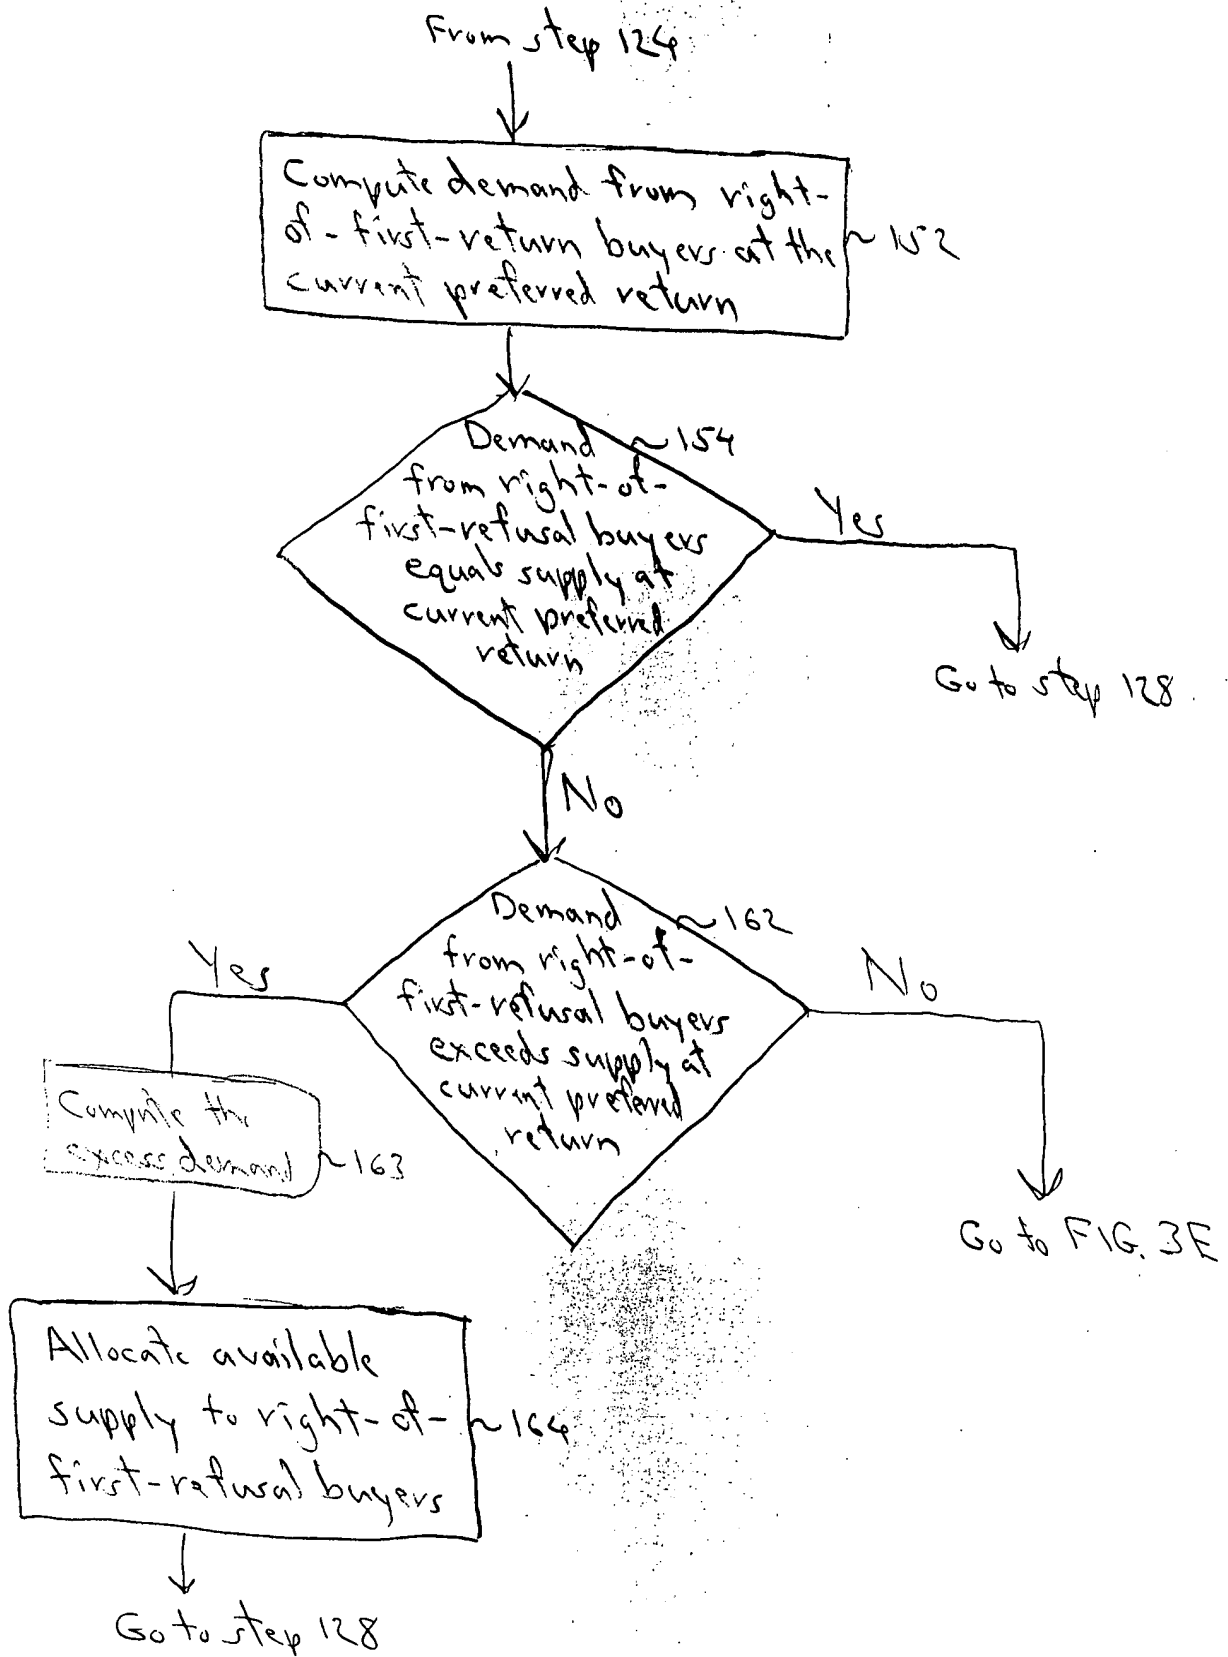 From step 124
Compute demand from right-
of-first-return buyers at the
current preferred return
~152
Demand
~154
from right-of-
first-refusal buyers
equals supply at
current preferred
return
Yes
Go to step 128
No
Demand
~162
from right-of-
first-refusal buyers
exceeds supply at
current preferred
return
Yes
No
Compute the
excess demand
~163
Go to FIG. 3E
Allocate available
supply to right-of-
first-refusal buyers
~164
Go to step 128